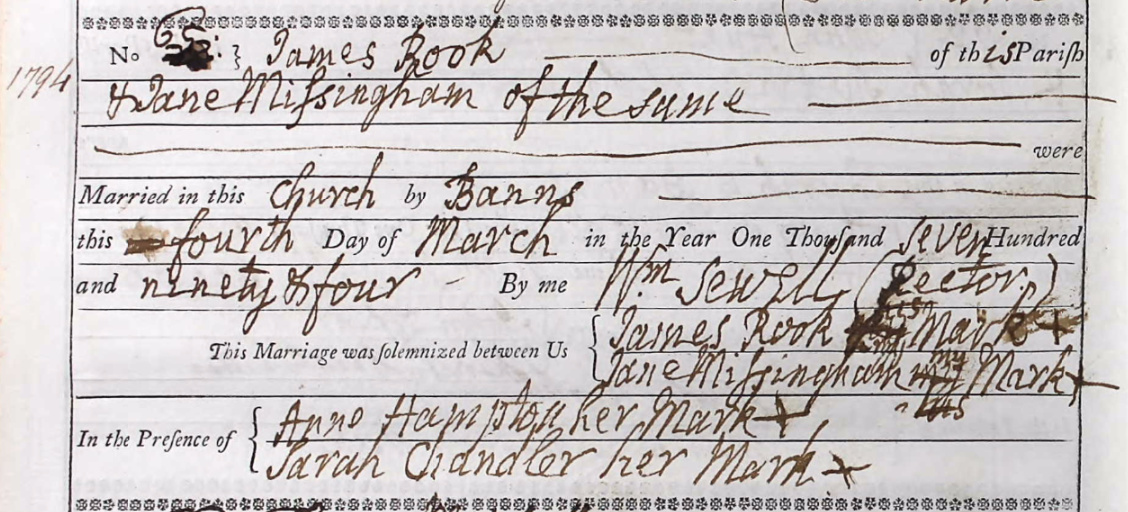 No : } James Rook of this Pariſh
1794
& Jane Miſsingham of the same
were
Married in this Church by Banns
this fourth Day of March in the Year One Thouſand seven Hundred
and ninety & four By me Wm Sewell (Rector.)
This Marriage was ſolemnized between Us { James Rook Mark +
Jane Miſsingham my Mark +
In the Preſence of { Anne Hampton her Mark +
Sarah Chandler her Mark +